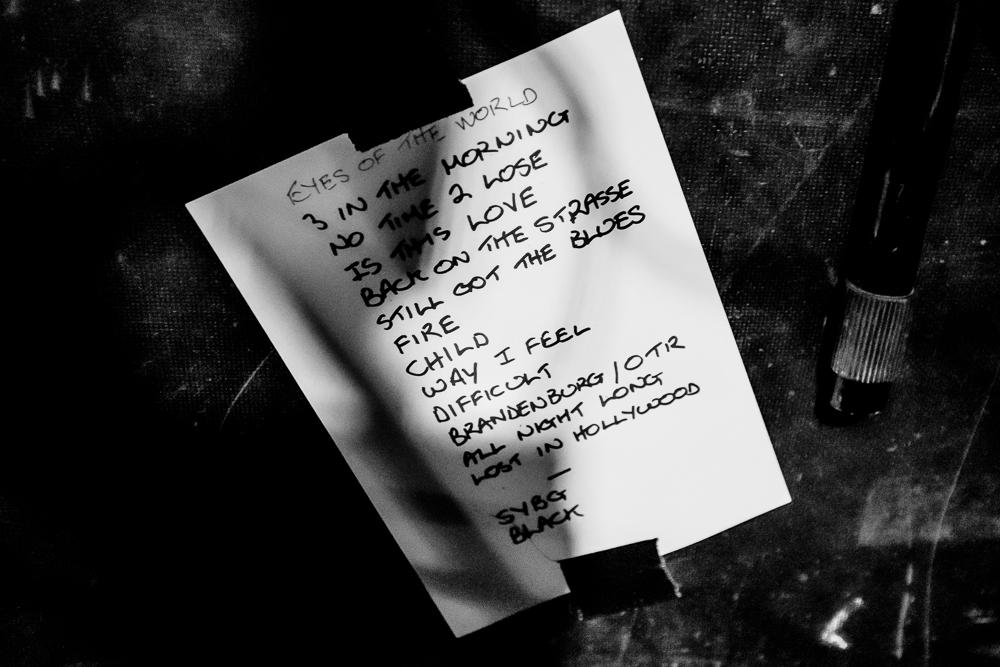 EYES OF THE WORLD
3 IN THE MORNING
NO TIME 2 LOSE
IS THIS LOVE
BACK ON THE STRASSE
STILL GOT THE BLUES
FIRE
CHILD
WAY I FEEL
DIFFICULT
BRANDENBURG / OTR
ALL NIGHT LONG
LOST IN HOLLYWOOD
—
SYBG
BLACK